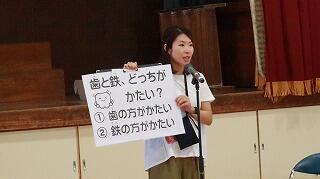 歯と鉄、どっちが
かたい？
① 歯の方がかたい
② 鉄の方がかたい